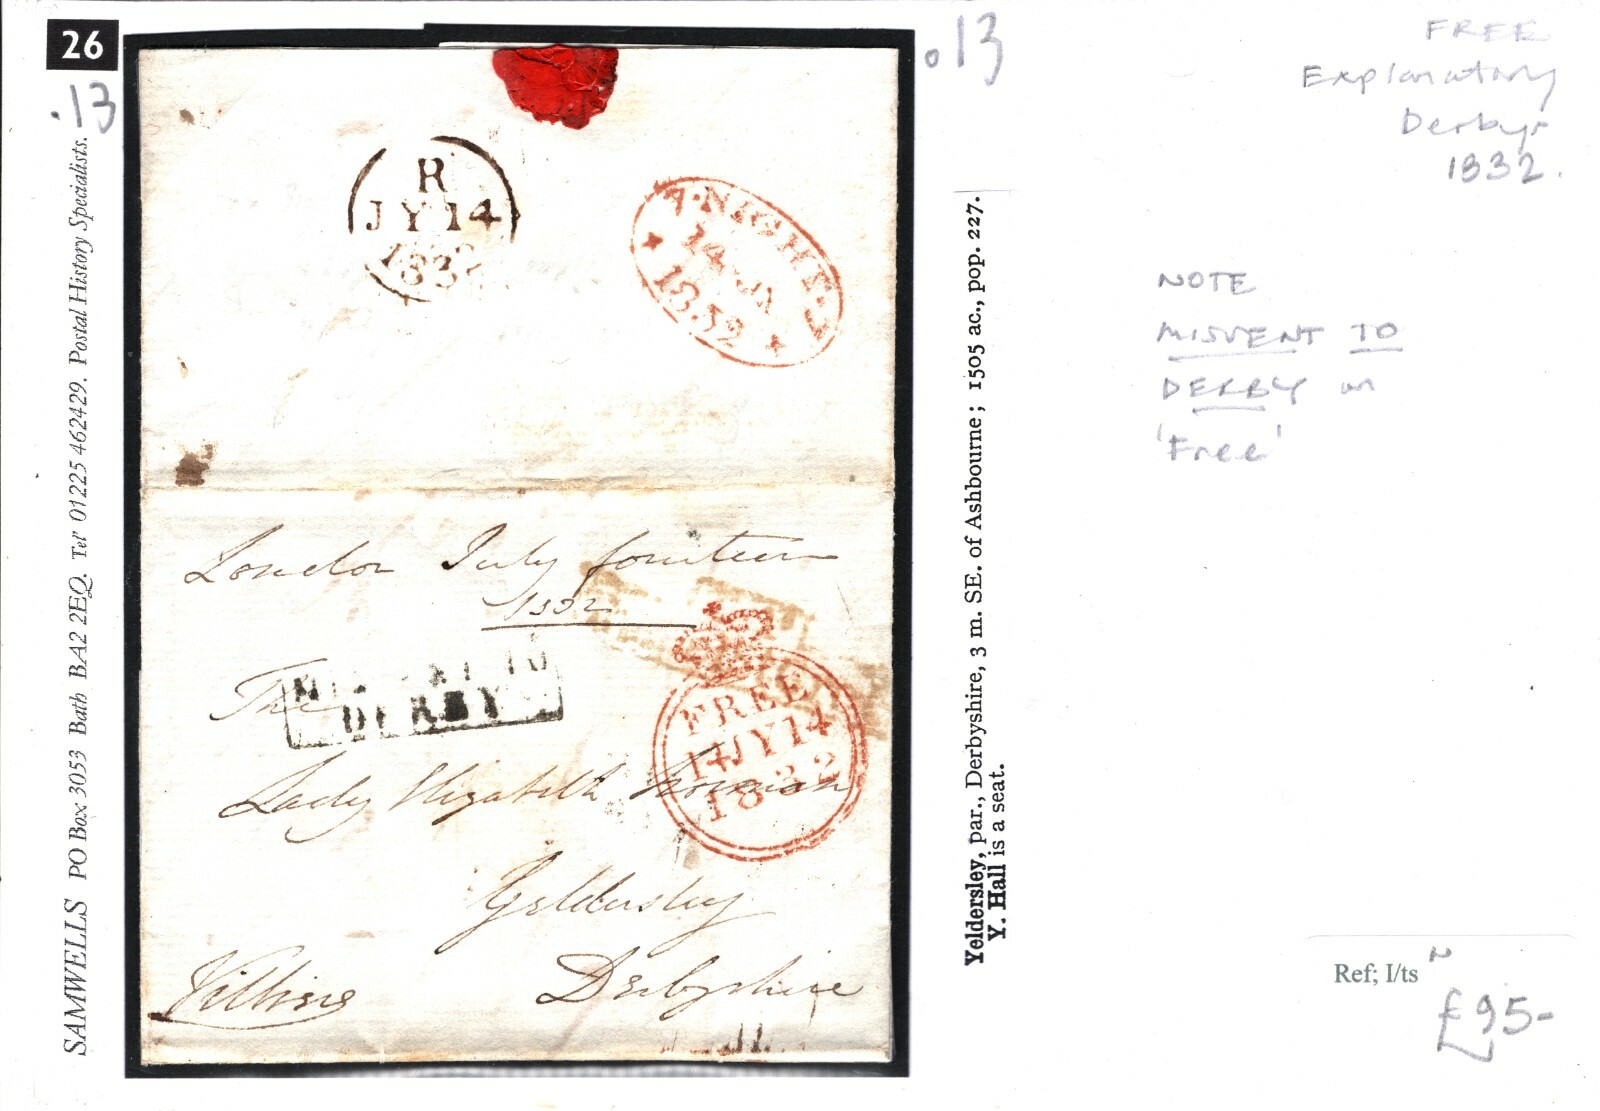 26
.13
SAMWELLS PO Box 3053 Bath BA2 2EQ. Tel' 01225 462429. Postal History Specialists.
R
JY 14
1832
7·NIGHT·7
14 JY
1832
London July fourteen
1832
The
MISSENT TO
DERBY
FREE
14JY14
1832
Lady Elizabeth
Yeldersley
Derbyshire
Villiers
.13
Yeldersley, par., Derbyshire, 3 m. SE. of Ashbourne; 1505 ac., pop. 227.
Y. Hall is a seat.
FREE
Explanatory
Derbys
1832.
NOTE
MISSENT TO
DERBY on
'Free'
Ref; I/ts
£95-